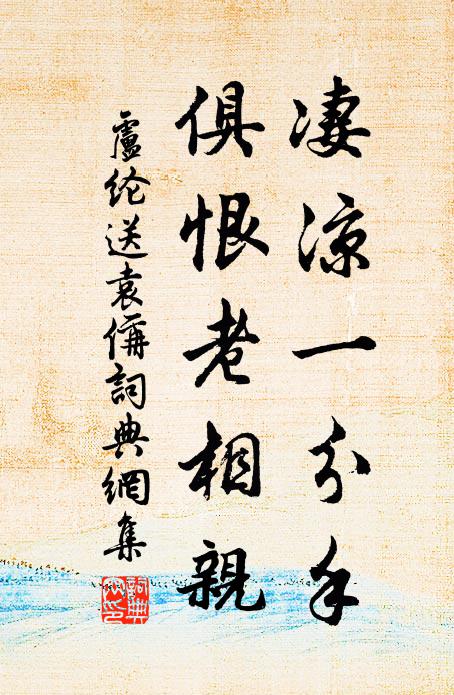 凄凉一分手
俱恨老相親
盧纶送袁偁詞典網集